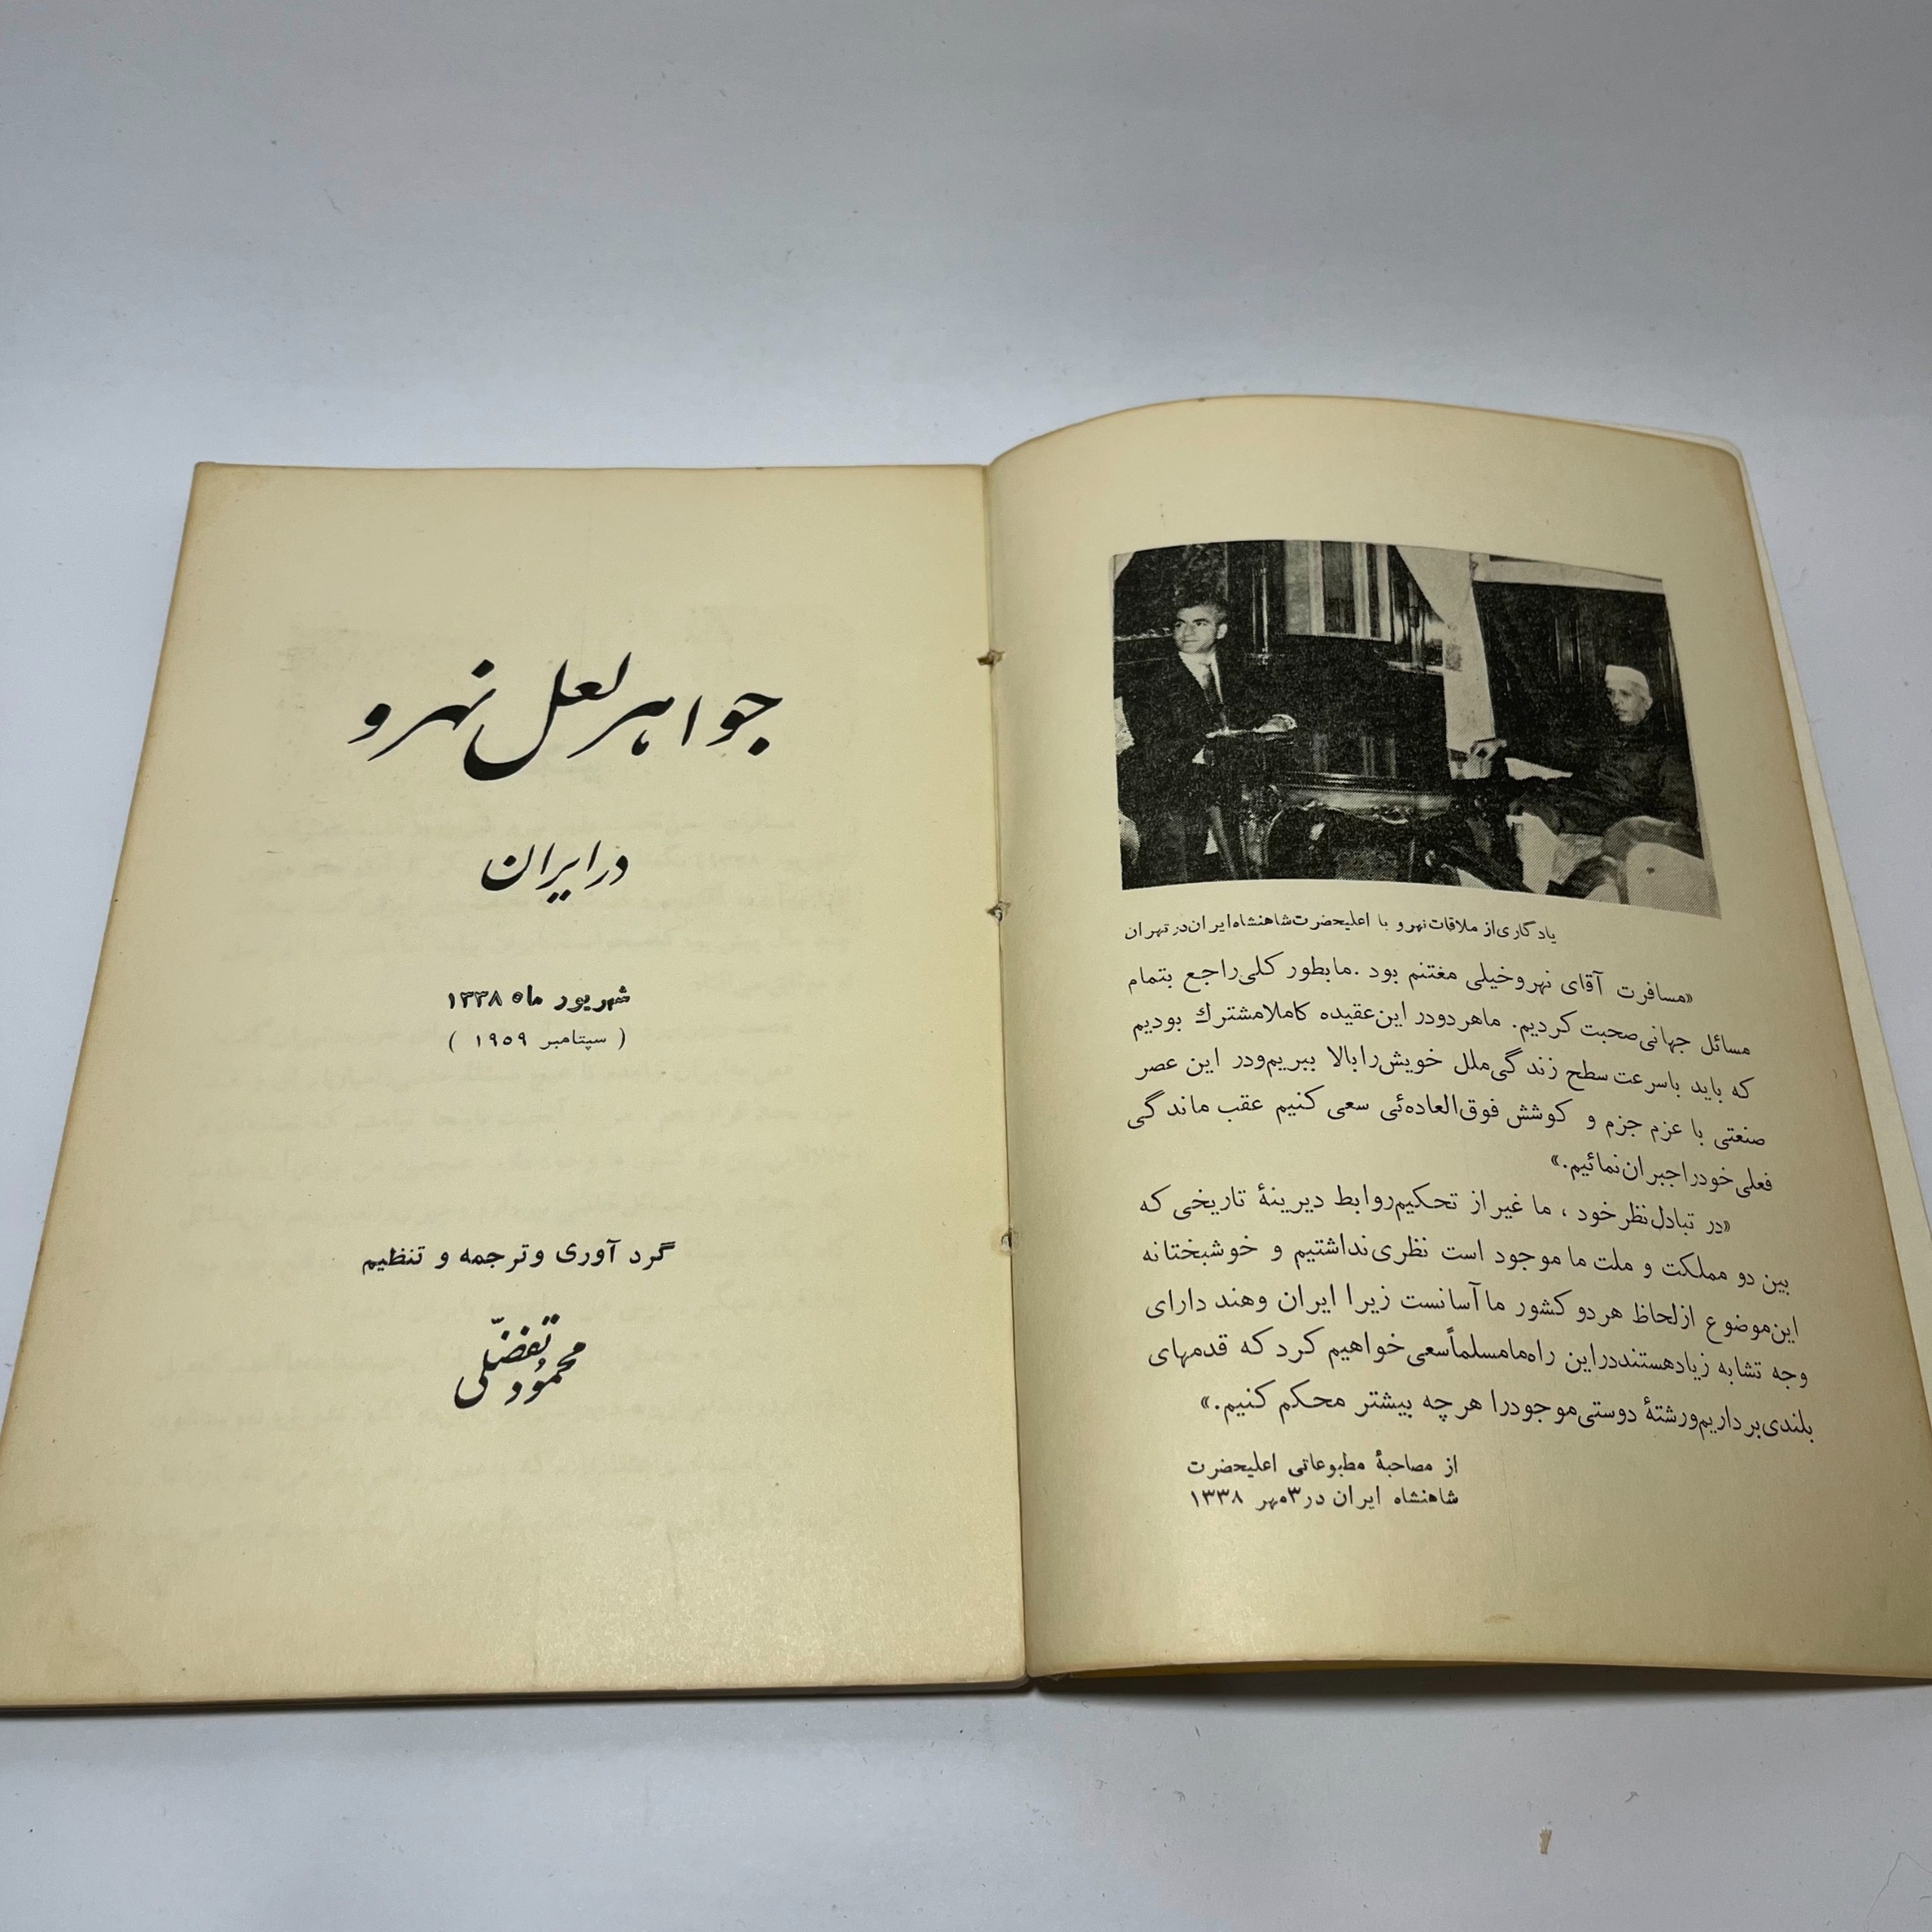 یادگاری از ملاقات نهرو با اعلیحضرت شاهنشاه ایران در تهران
«مسافرت آقای نهرو خیلی مغتنم بود . ما بطور کلی راجع بتمام
مسائل جهانی صحبت کردیم. ما هر دو در این عقیده کاملا مشترك بودیم
که باید با سرعت سطح زندگی ملل خویش را بالا ببریم و در این عصر
صنعتی با عزم جزم و کوشش فوق‌العاده‌ئی سعی کنیم عقب ماندگی
فعلی خود را جبران نمائیم.»
«در تبادل نظر خود ، ما غیر از تحکیم روابط دیرینهٔ تاریخی که
بین دو مملکت و ملت ما موجود است نظری نداشتیم و خوشبختانه
این موضوع از لحاظ هر دو کشور ما آسانست زیرا ایران و هند دارای
وجه تشابه زیاد هستند در این راه ما مسلماً سعی خواهیم کرد که قدمهای
بلندی برداریم و رشتهٔ دوستی موجود را هر چه بیشتر محکم کنیم.»
از مصاحبهٔ مطبوعاتی اعلیحضرت
شاهنشاه ایران در ۳ مهر ۱۳۳۸
جواهر لعل نهرو
در ایران
شهریور ماه ۱۳۳۸
( سپتامبر ۱۹۵۹ )
گرد آوری و ترجمه و تنظیم
محمود تفضّلی